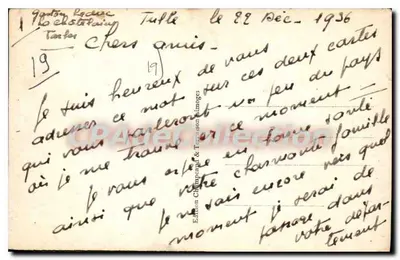 Tulle le 22 Déc. 1936
Chers amis -
19
19
Je suis heureux de vous
adresser ce mot sur ces deux cartes
qui vous parleront un peu du pays
où je me trouve en ce moment -
Je vous espère en bonne santé
ainsi que votre charmante famille
Je ne sais encore vers quel
moment je serai de
passage dans
votre dépar-
tement